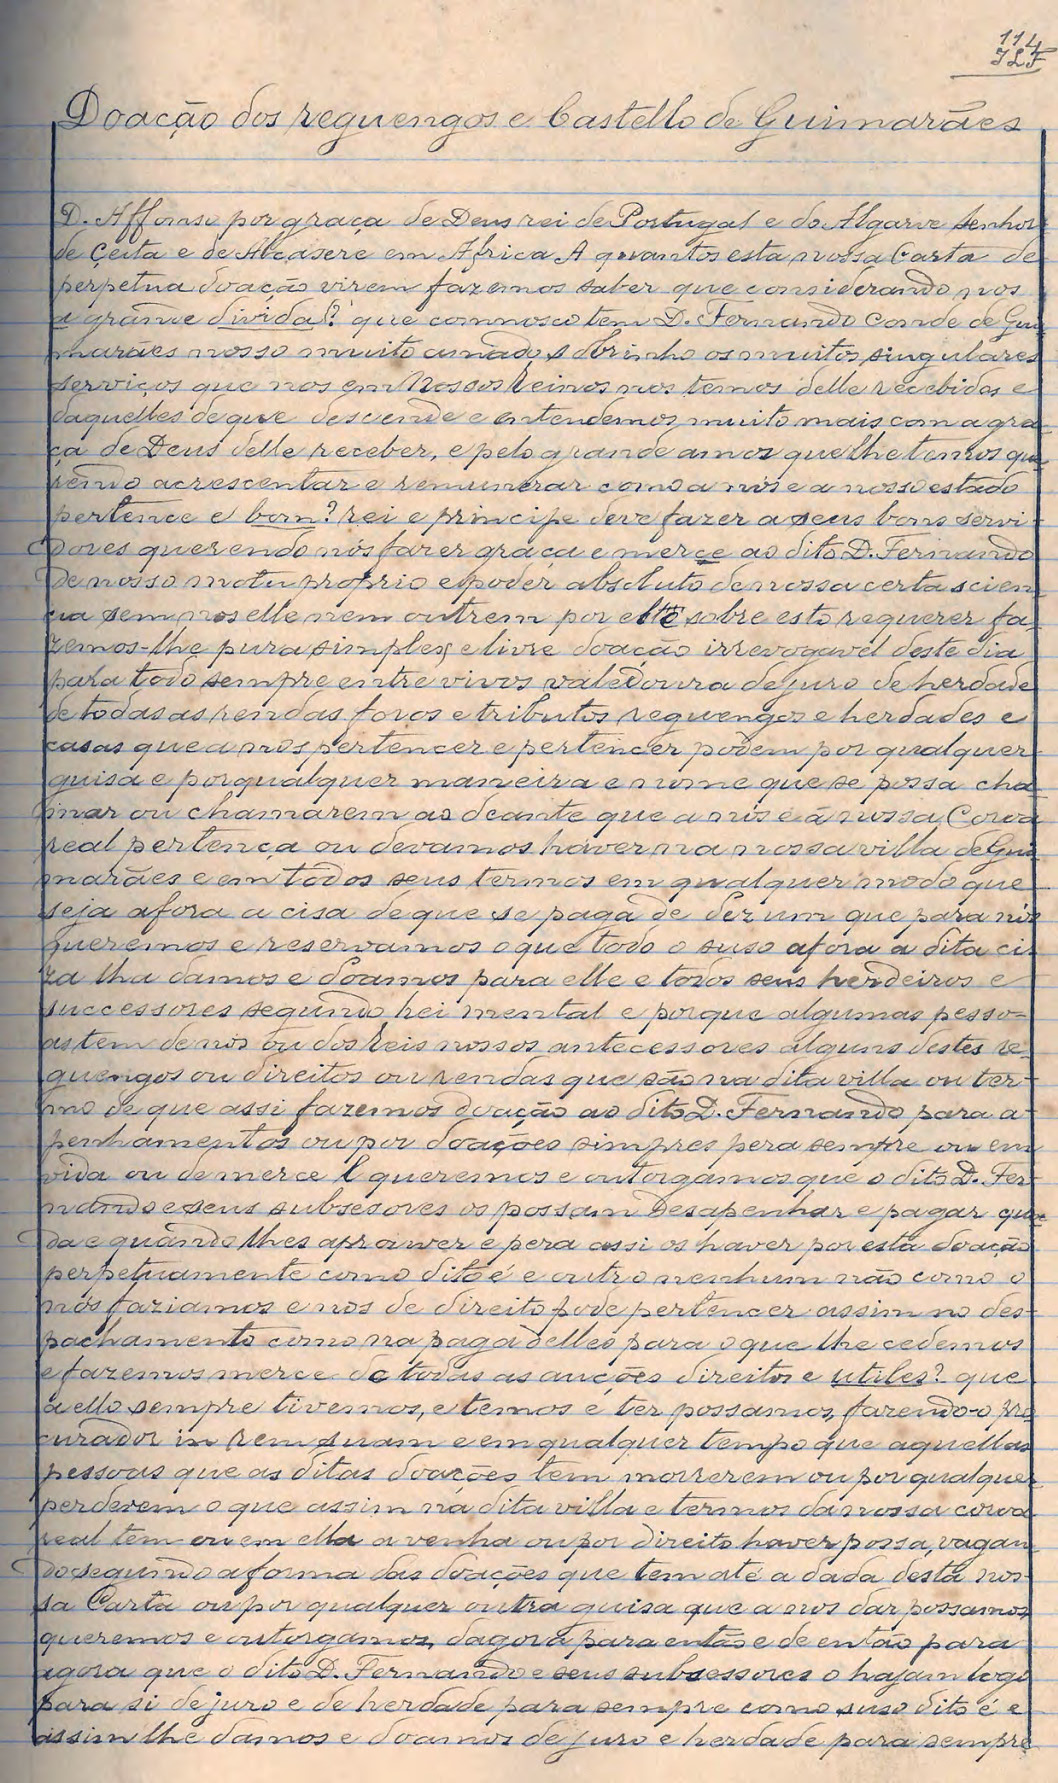 114
JLF
Doação dos reguengos e Castello de Guimarães
D. Affonso por graça de Deus rei de Portugal e do Algarve senhor
de Çeita e de Alcasere em Africa A quantos esta nossa Carta de
perpetua doação virem fazemos saber que considerando nos
a grande divida(? que comnosco tem D. Fernando Conde de Gui
marães nosso muito amado sobrinho os muitos singulares
serviços que nos em Nossos Reinos nos temos delle recebidos e
daquelles de que descende e entendemos muito mais com a gra
ça de Deus delle receber, e pelo grande amor que lhe temos que
rendo acrescentar e remunerar como a nós e a nosso estado
pertence e bom? rei e principe deve fazer a seus bons servi-
dores querendo nós fazer graça e merce ao dito D. Fernando
de nosso motu proprio e poder absoluto de nossa certa scien
cia sem nos elle nem outrem por elle sobre esto requerer fa-
zemos-lhe pura simplex e livre doação irrevogavel deste dia
para todo sempre entre vivos valedoura de juro de herdade
de todas as rendas foros e tributos reguengos e herdades e
casas que a nos pertencer e pertencer podem por qualquer
guisa e por qualquer maneira e nome que se possa cha
mar ou chamarem ao deante que a nós e á nossa Coroa
real pertença ou devamos haver na nossa villa de Gui
marães e em todos seus termos em qualquer modo que
seja afora a cisa de que se paga de dez um que para nós
queremos e reservamos o que todo o suso afora a dita ci-
za lha damos e doamos para elle e todos seus herdeiros e
successores segundo lei mental e porque algumas pesso-
as tem de nós ou dos Reis nossos antecessores alguns destes re-
guengos ou direitos ou rendas que são na dita villa ou ter-
mo de que assi fazemos doação ao dito D. Fernando para a-
penhamentos ou por doações simpres pera sempre ou em
vida ou de merce l queremos e outorgamos que o dito D. Fer-
nando e seus subsesores os possam desapenhar e pagar quan
do e quando lhes aprouver e pera assi os haver por esta doação
perpetuamente como dito é e outro nenhum não como o
nós faziamos e nos de direito pode pertencer assim no des-
pachamento como na paga delles para o que lhe cedemos
e fazemos merce de todas as auções direitos e utiles? que
a ello sempre tivemos, e temos e ter possamos, fazendo-o pro
curador in rem suam e em qualquer tempo que aquellas
pessoas que as ditas doações tem morrerem ou por qualquer
perderem o que assim na dita villa e termos da nossa coroa
real tem ou em ella a venha ou por direito haver possa, vagan
do segundo a forma das doações que tem até a dada desta nos-
sa Carta ou por qualquer outra guisa que a nos dar possamos,
queremos e outorgamos, dagora para então e de então para
agora que o dito D. Fernando e seus subsessores o hajam logo
para si de juro e de herdade para sempre como suso dito é e
assim lhe damos e doamos de juro e herdade para sempre